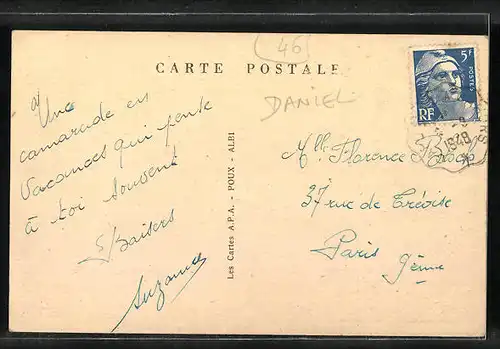 46
CARTE POSTALE
DANIEL
5F
POSTES
RF
1948
Une
camarade en
vacances qui pense
à toi souvent
Baisers
Suzanne
Les Cartes A.P.A. - POUX - ALBI
Mlle Florence
37 rue de Trévise
Paris 9ème